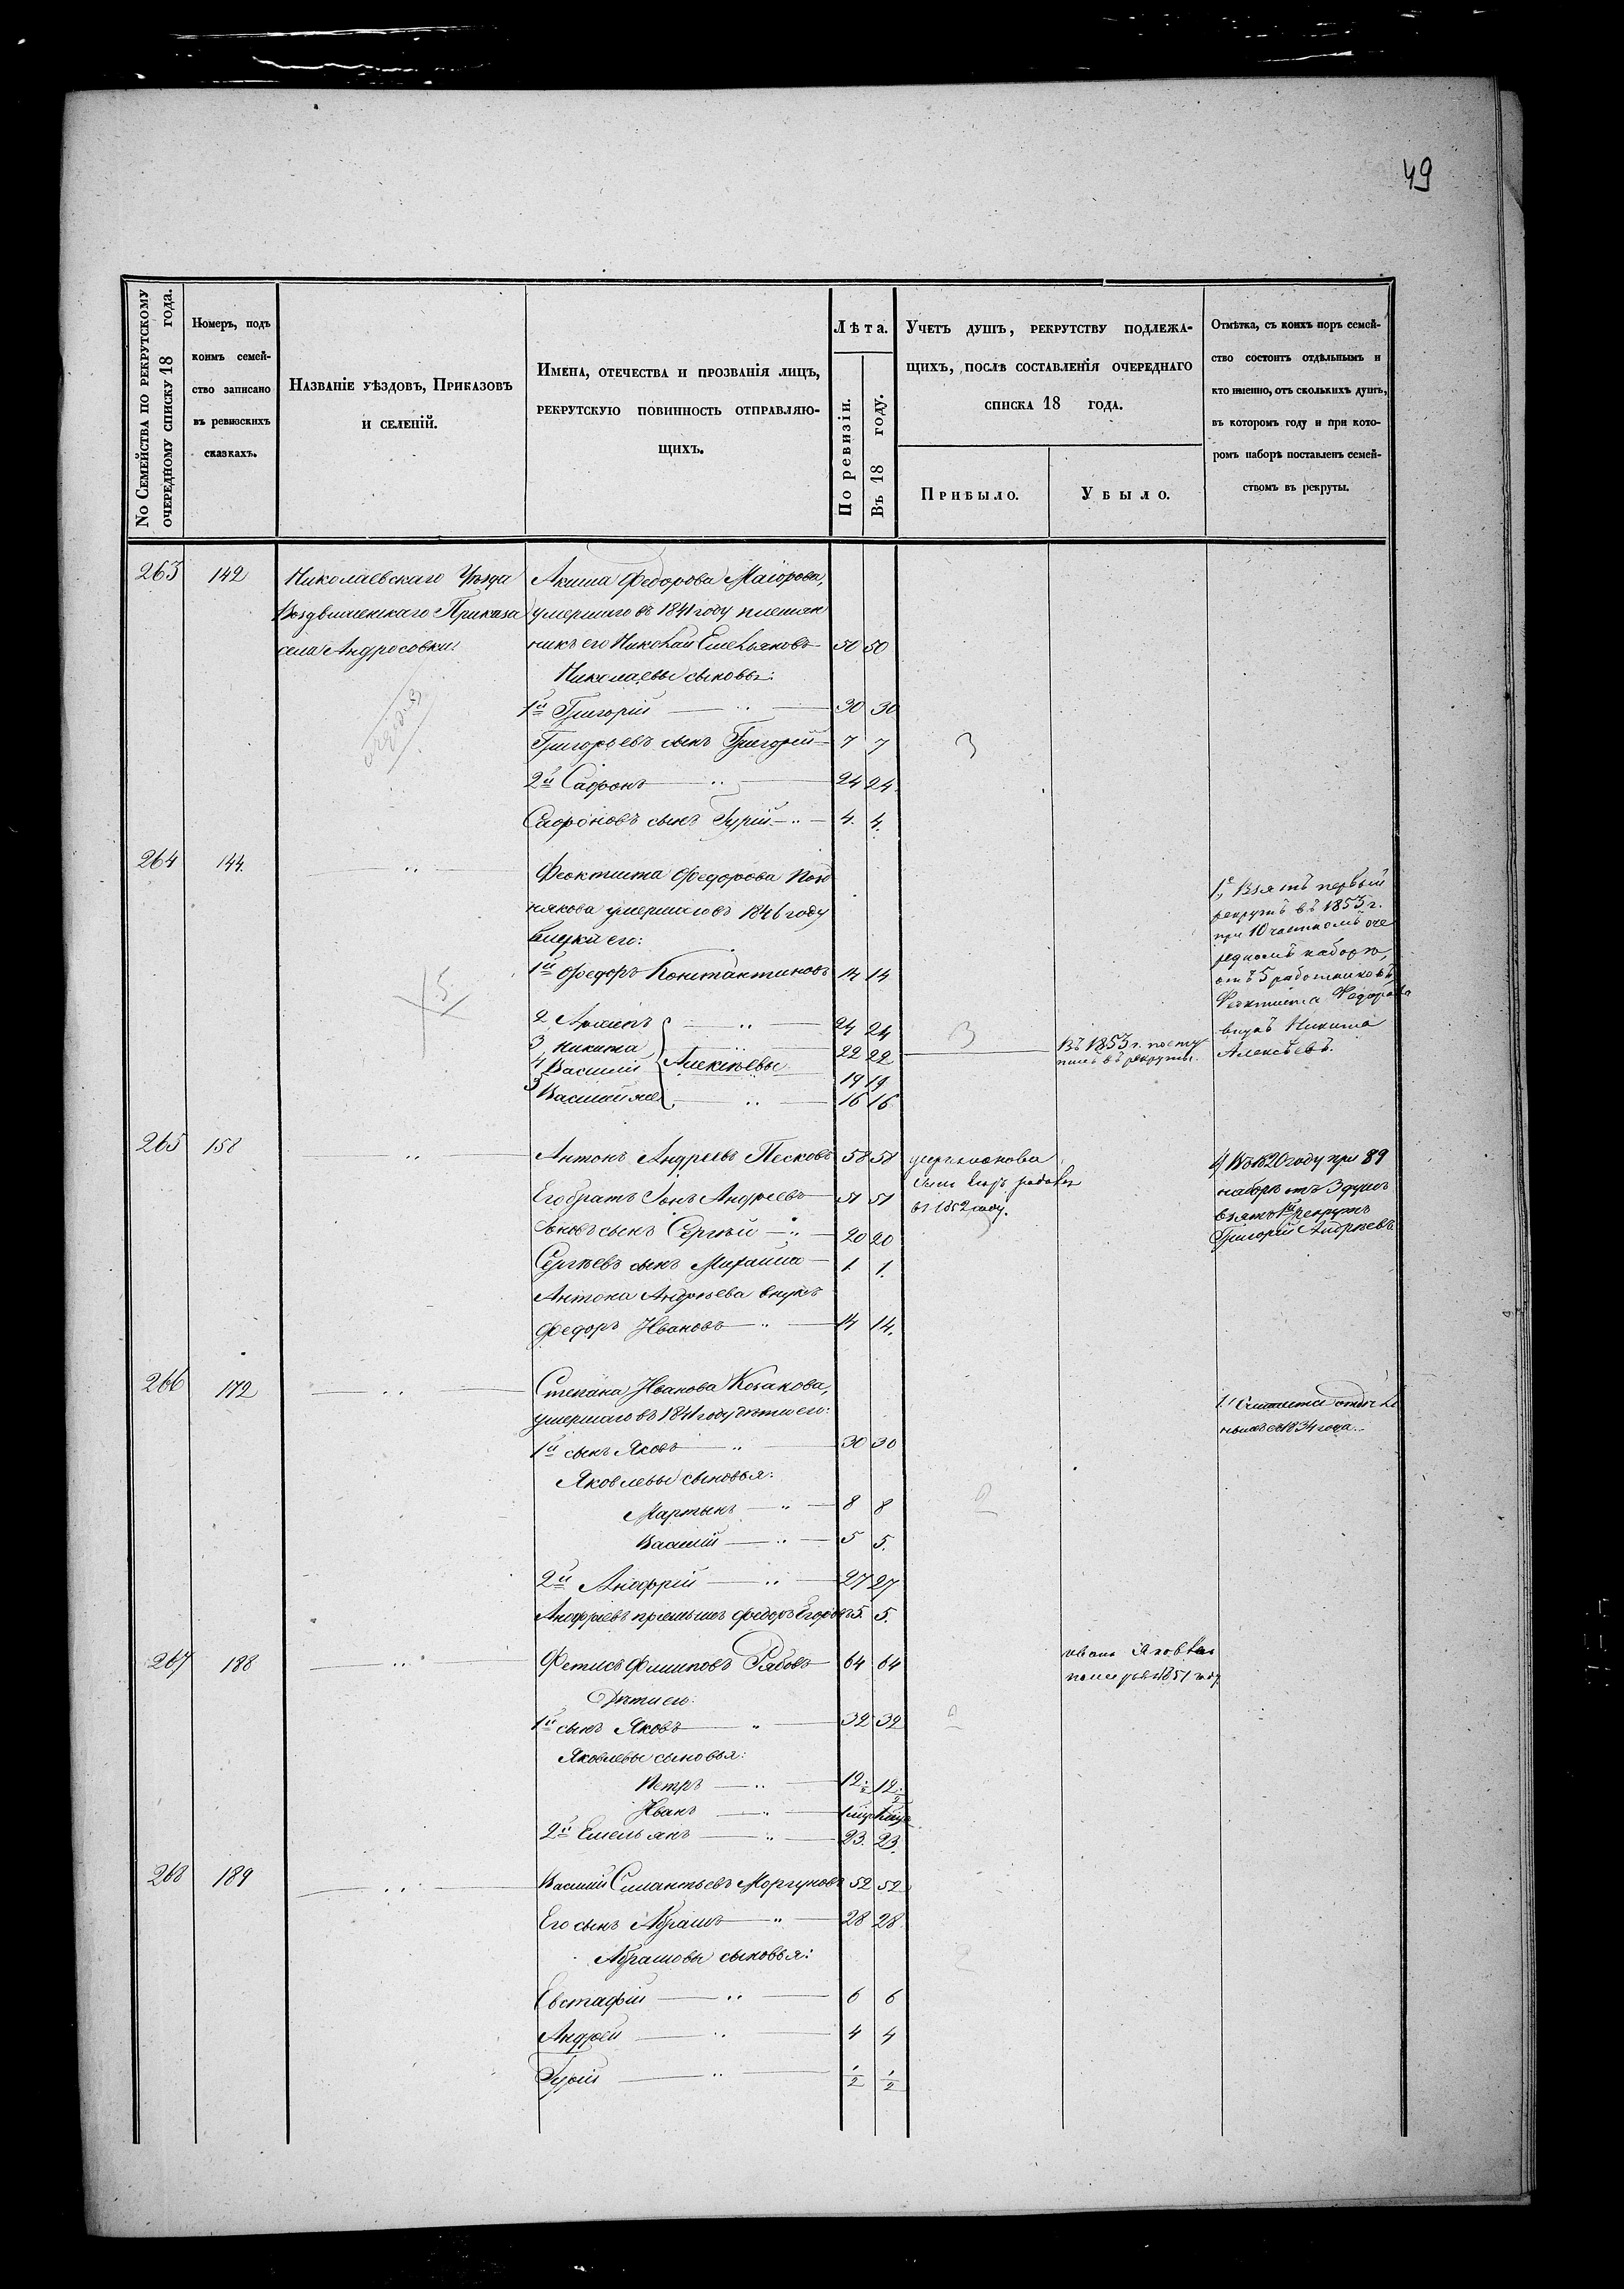 49
No Семейства по рекрутскому
очередному списку 18 года.
Номеръ, подъ
коимъ семей-
ство записано
въ ревизскихъ
сказкахъ.
Названіе уѣздовъ, Приказовъ
и селеній.
Имена, отечества и прозванія лицъ,
рекрутскую повинность отправляю-
щихъ.
Лѣта.
По ревизіи.
Въ 18 году.
Учетъ душъ, рекрутству подлежа-
щихъ, послѣ составленія очереднаго
списка 18 года.
Прибыло.
Убыло.
Отмѣтка, съ коихъ поръ семей-
ство состоитъ отдѣльнымъ и
кто именно, отъ сколькихъ душъ,
въ которомъ году и при кото-
ромъ наборѣ поставленъ семей-
ствомъ въ рекруты.
263 142 Николаевскаго Уѣзда Акима Федорова Маіорова,
Воздвиженскаго Приказа умершаго въ 1841 году племян
села Андросовки: никъ его Николай Емельяновъ 50 50
Николаевы сыновья:
1й Григорій 30 30
Григорьевъ сынъ Григорій 7 7 3
2й Сафронъ 24 24.
Сафроновъ сынъ Гурій 4. 4.
264 144. Феоктиста Федорова
някова умершаго въ 1846 году
внуки его:
1й Федоръ Константиновъ 14 14
5
2 24 24
3 Никита 22 22 3 Въ 1853 г. посту
пилъ въ рекруты.
4 Василій Алексѣевы 19 19
Василій же 16 16
1е, Взятъ первый
рекрутъ въ 1853 г.
при 10 частномъ оче
редномъ наборѣ,
отъ 5 работниковъ
Феоктиста Федорова
внукъ Никита
Алексѣевъ.
265 158 Антонъ Андреевъ Песковъ 58 58
Его братъ Іонъ Андреевъ 51 51
сынъ Сергѣй 20 20
Сергѣевъ сынъ Михайла 1 1.
Антона Андреева внукъ
Федоръ Ивановъ 14 14.
сынъ
въ 1852 году.
3
Въ 1820 году при 89
наборѣ отъ 3 душъ
взятъ 1й рекрутъ
Григорій Андреевъ
266 172 Степана Иванова Козакова,
умершаго въ 1841 году дѣти его:
1й сынъ Яковъ 30 30
Яковлевы сыновья:
Мартынъ 8 8 2
Василій 5 5.
2й Анофрій 27 27
Анофріевъ пріемышъ Федоръ Егоровъ 5. 5.
1 Считается отдѣль
нымъ съ 1834 года.
267 188 Фетисъ Филиповъ Рябовъ 64 64
Дѣти его:
1й сынъ Яковъ 32 32 2
Яковлевы сыновья:
Петръ 12 12
Иванъ
2й Емельянъ 23. 23.
померъ въ 1851 году
268 189 Василій Силантьевъ Моргуновъ 52 52
Его сынъ Абрамъ 28 28
Абрамовы сыновья: 2
Евстафій 6 6
Андрей 4 4
Гурій ½ ½